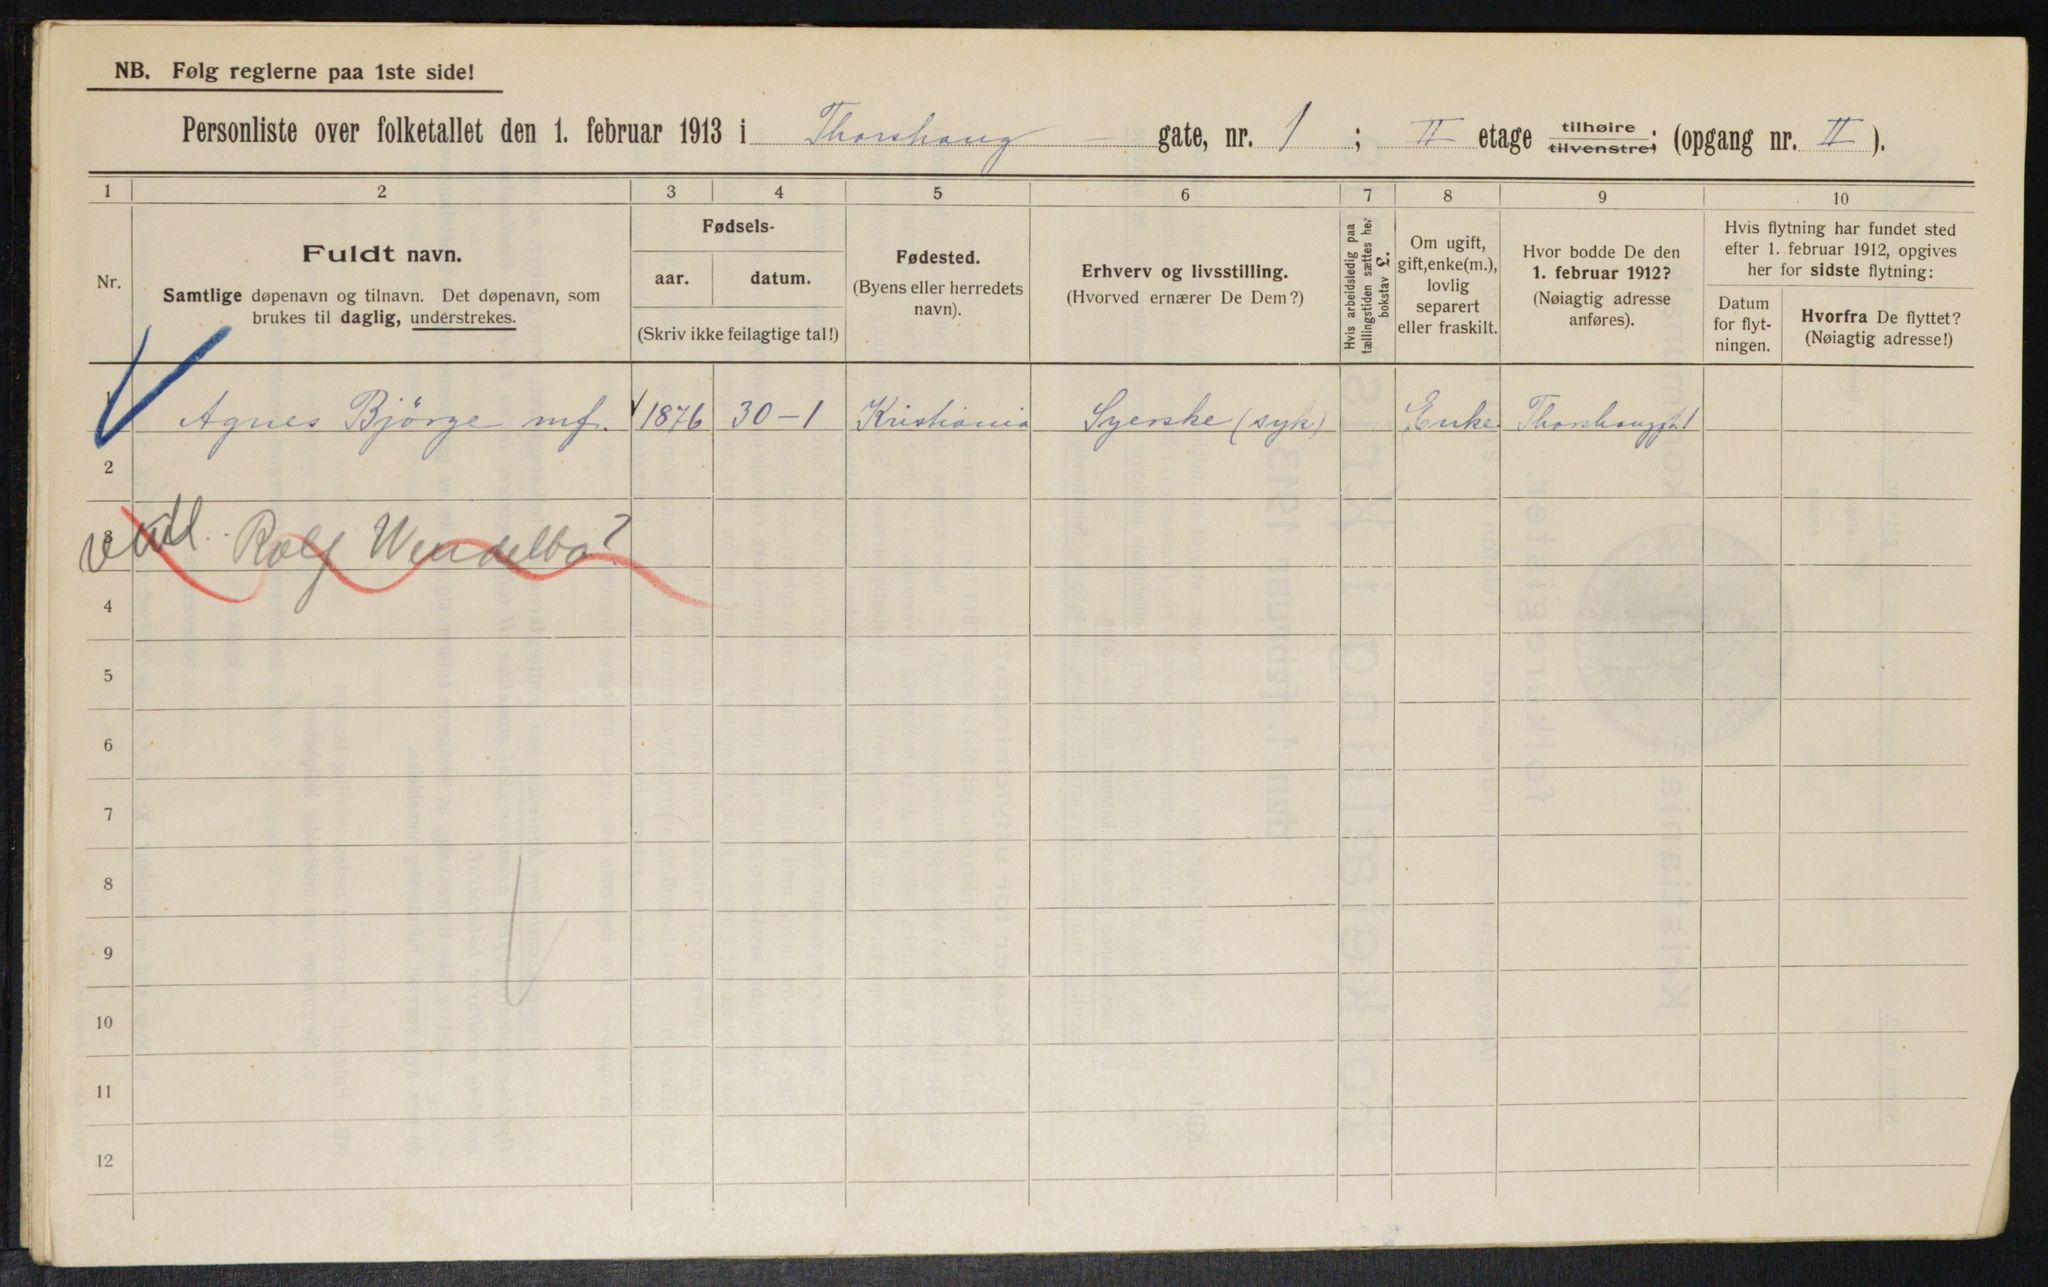 NB. Følg reglerne paa 1ste side!
Personliste over folketallet den 1. februar 1913 i Thorshaug gate, nr. 1 ; II etage tilhøire tilvenstre; (opgang nr. II ).
1 2 3 4 5 6 7 8 9 10
Nr.
Fuldt navn.
Samtlige døpenavn og tilnavn. Det døpenavn, som
brukes til daglig, understrekes.
Fødsels-
aar. datum.
(Skriv ikke feilagtige tal!)
Fødested.
(Byens eller herredets
navn).
Erhverv og livsstilling.
(Hvorved ernærer De Dem?)
Hvis arbeidsledig paa
tællingstiden sættes her
bokstav L.
Om ugift,
gift, enke(m.),
lovlig
separert
eller fraskilt.
Hvor bodde De den
1. februar 1912?
(Nøiagtig adresse
anføres).
Hvis flytning har fundet sted
efter 1. februar 1912, opgives
her for sidste flytning:
Datum
for flyt-
ningen.
Hvorfra De flyttet?
(Nøiagtig adresse!)
1 Agnes Bjørge mf. 1876 30-1 Kristiania Syerske (syk) Enke Thorshauggt 1
2
3 Rolf Wendelbo?
4
5
6
7
8
9
10
11
12